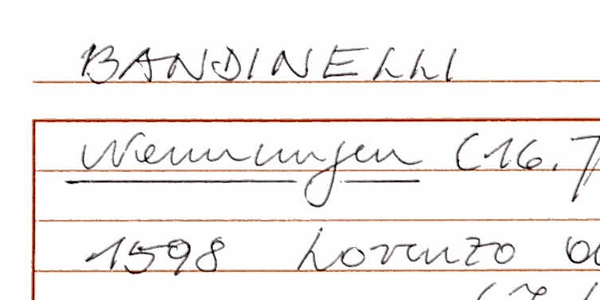 BANDINELLI
Nennungen (16.
1598 Lorenzo